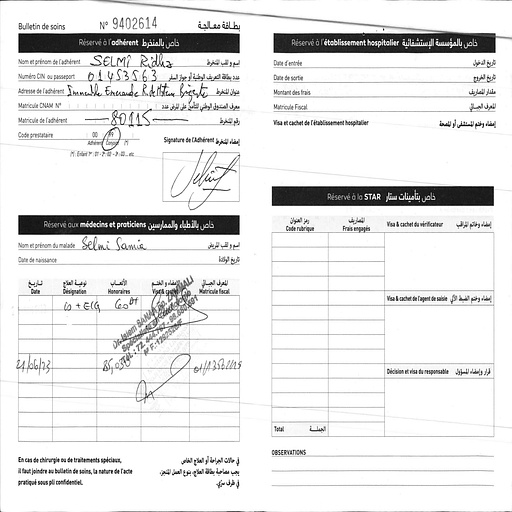 Bulletin de soins N° 9402614 بطاقة معالجة
Réservé à l'adhérent خاص بالمنخرط
Nom et prénom de l'adhérent SELMI Ridha اسم و لقب المنخرط
Numéro CIN ou passeport 01453563 عدد بطاقة التعريف الوطنية أو جواز السفر
Adresse de l'adhérent Immeuble عنوان المنخرط
Matricule CNAM N°
Matricule de l'adhérent 80115 رقم المنخرط
Code prestataire 00 99
Adhérent Conjoint (*)
(*) : Enfant 1er : 01 - 2è : 02 - 3è : 03 ... etc
Signature de l'Adhérent إمضاء المنخرط
Réservé aux médecins et praticiens خاص بالأطباء والممارسين
Nom et prénom du malade Selmi Samia اسم و لقب المريض
Date de naissance تاريخ الولادة
تاريخ نوعية العلاج الأتعاب إمضاء و الختم المعرف الجبائي
Date Désignation Honoraires Visa & cachet Matricule fiscal
+ ECG 60
21/06/23 85,000
En cas de chirurgie ou de traitements spéciaux,
il faut joindre au bulletin de soins, la nature de l'acte
pratiqué sous pli confidentiel.
في حالات الجراحة أو العلاج الخاص
يجب مصاحبة بطاقة العلاج، بنوع العمل المنجز،
في ظرف سري.
Réservé à l'établissement hospitalier خاص بالمؤسسة الإستشفائية
Date d'entrée تاريخ الدخول
Date de sortie تاريخ الخروج
Montant des frais مقدار المصاريف
Matricule Fiscal المعرف الجبائي
Visa et cachet de l'établissement hospitalier إمضاء وختم المستشفى أو المصحة
Réservé à la STAR خاص بتأمينات ستار
رمز العنوان المصاريف
Code rubrique Frais engagés Visa & cachet du vérificateur إمضاء وخاتم المراقب
Visa & cachet de l'agent de saisie إمضاء وختم الضبط الآلي
Décision et visa du responsable قرار وإمضاء المسؤول
Total الجملة
OBSERVATIONS